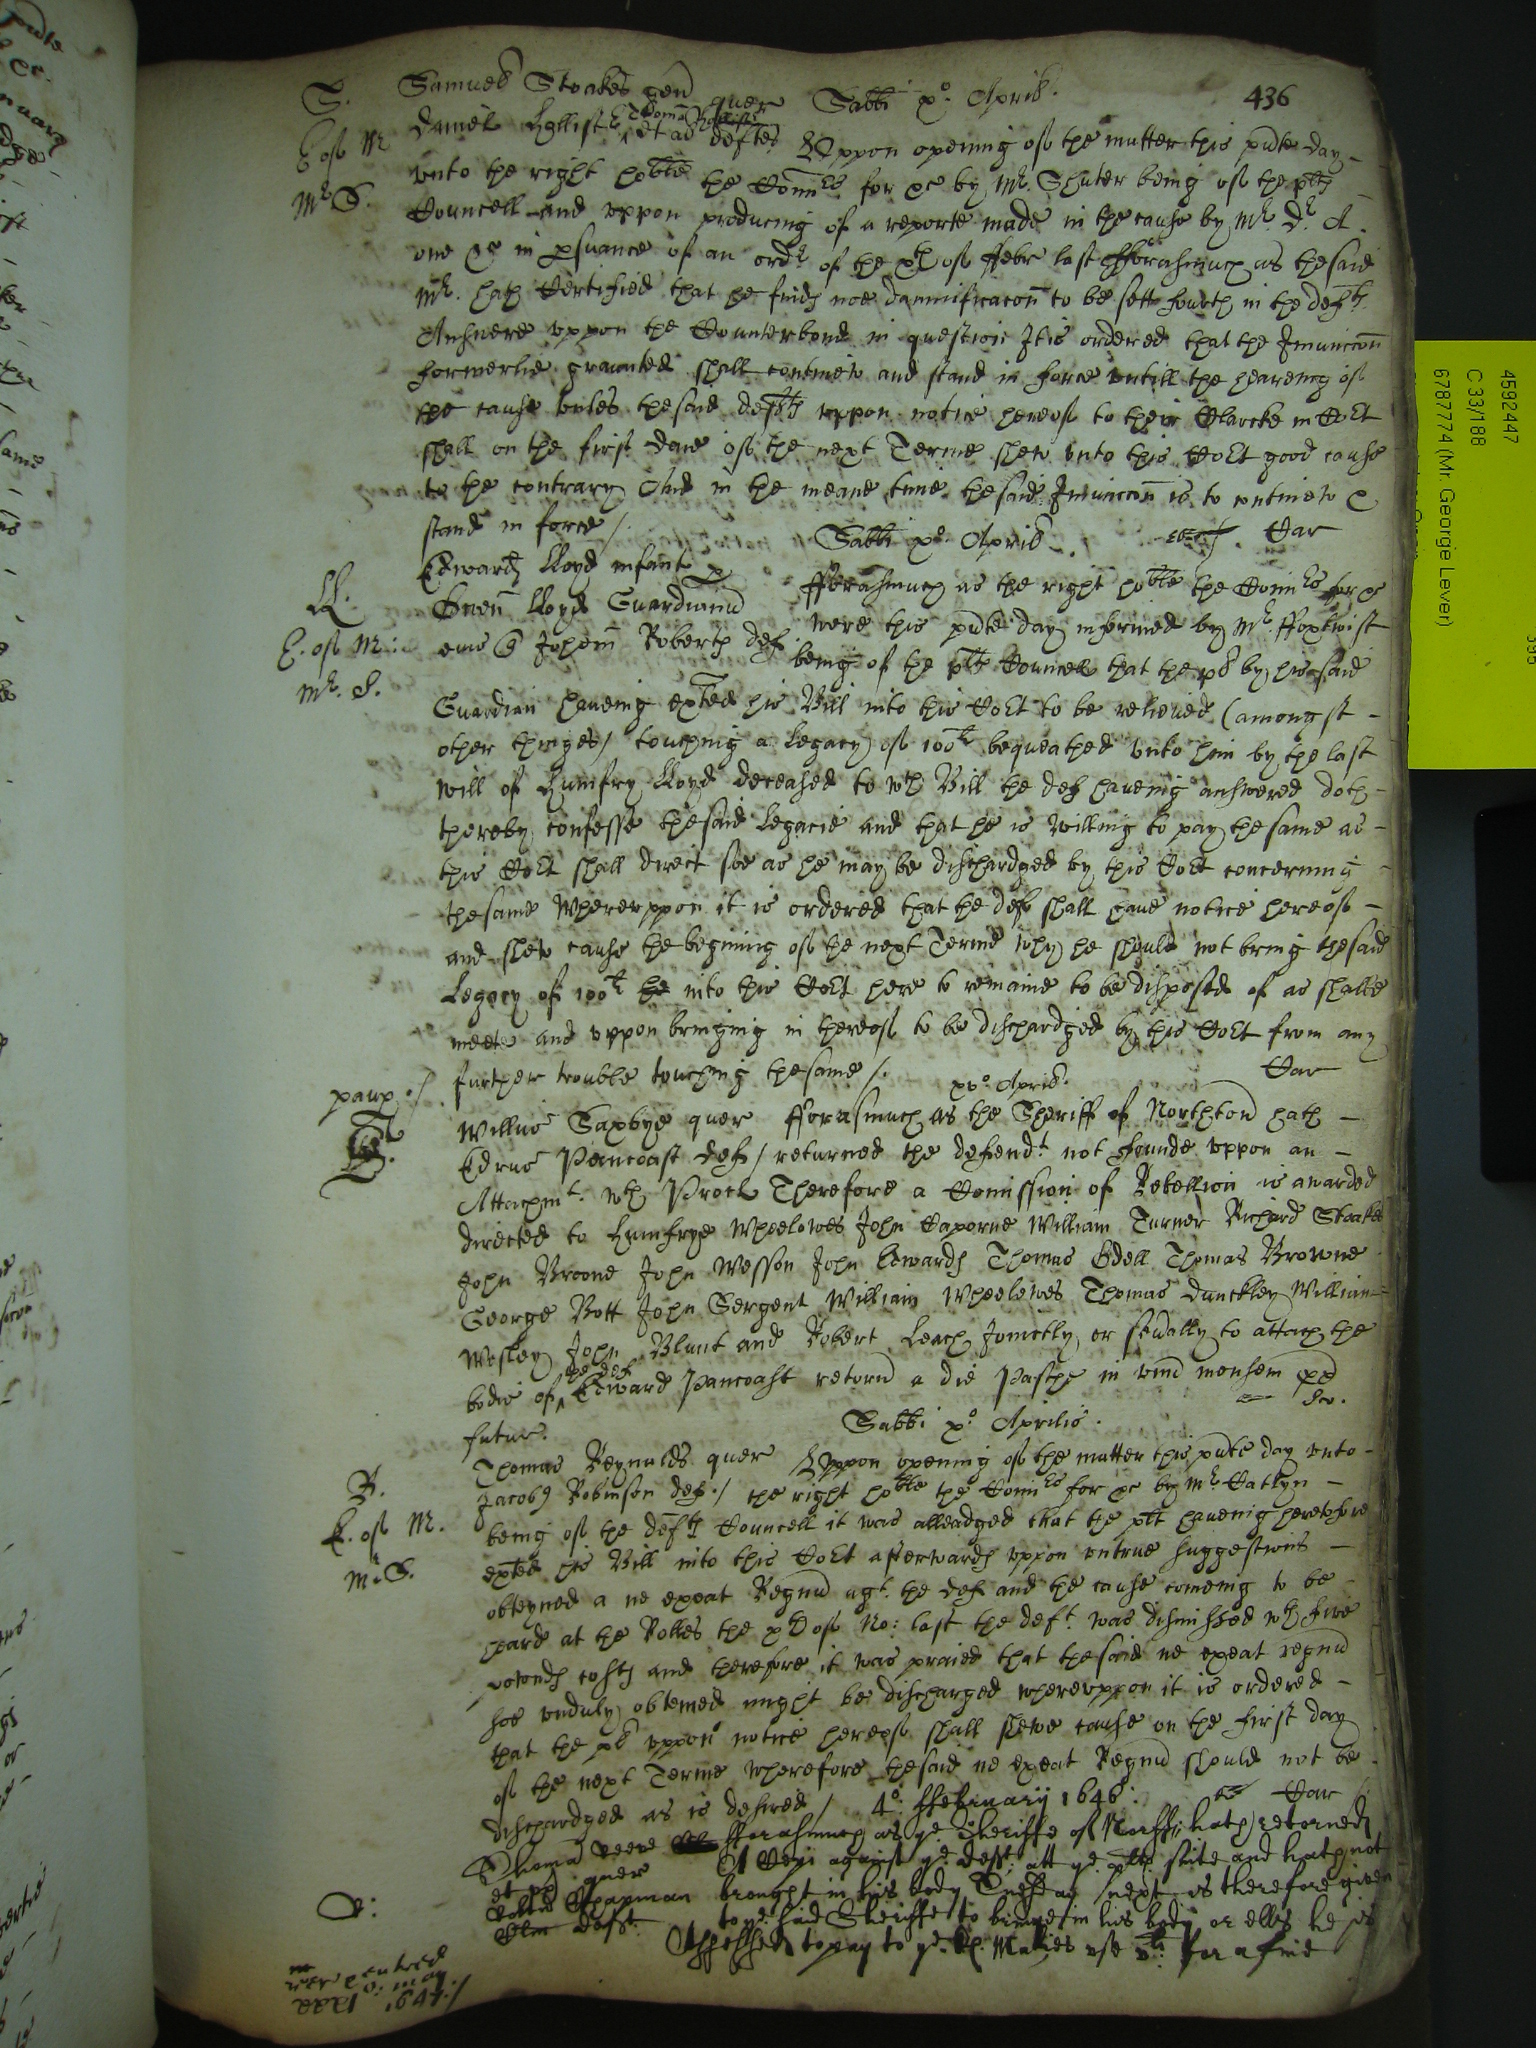 436
S. Samuel Stoakes gen quer Sabbi xo. Aprilis.
E of M Daniel Hollist & Thoma Hollist et al defts Uppon opening of the matter this pnte day
Mr S. unto the right hoble the Comrs for &c by Mr. Shuter being of the plts
Councell and uppon producing of a reporte made in the cause by Mr. Dr. A.
one &c in psuance of an ordr of the xth of Febr last fforasmuch as the said
Mr. hath Certified that he finds noe damnificacon to be sett fourth in the defts
Answere uppon the Counterbond in question It is ordered that the Iniunccon
formerlie graunted shall continew and stand in force untill the heareing of
the cause unles the said defts uppon notice hereof to their Clarcke in Cort
shall on the first daie of the next Terme shew unto this Cort good cause
to the contrary And in the meane time the said Iniunccon is to continew &
stand in force /
Sabbi xo. Aprilis Car
Ll. Edward Lloyd infant p fforasmuch as the right hoble the Comrs for &c
Owen Lloyd Guardianu were this pnte day informed by Mr. ffoxwist
E. of M: eius Johem Roberts def being of the plts Councell that the pl by his said
Mr. S.
Guardian haveing exhted his Bill into this Cort to be relieved (amongst
other thinges) touching a Legacy of 100l bequeathed unto him by the last
will of Humfry Lloyd deceased to wch Bill the def haveing answered doth
thereby confesse the said Legacie and that he is willing to pay the same as
this Cort shall direct soe as he may be dischardged by this Cort concerning
the same Whereuppon it is ordered that the def shall have notice hereof
and shew cause the begining of the next Terme why he should not bring the said
Legacy of 100l he into this Cort here to remaine to be disposed of as shalbe
meete and uppon bringing in thereof to be dischardged by this Cort from any
further trouble touching the same /. Car
paup: / xvo. Aprilis.
Willus Saxbye quer fforasmuch as the Sheriff of Northton hath
Edrus Pancoast def / returned the defendt. not founde uppon an
Attachmt. wth Procl Therefore a Comission of Rebellion is awarded
directed to Humfrye Wheelowes John Caporne William Turner Richard Stoakes
John Broone John Wesson John Edwards Thomas Odell Thomas Browne
George Bott John Sergent William Wheelewes Thomas Dunckley William
Wesley John Blunt and Robert Leach Joinctly or sevally to attach the
bodie of the def Edward Pancoast retorn a die Pasche in unu mensem px
futur.
Sabbi xo Aprilis.
R. Thomas Reynalds quer Uppon opening of the matter this pnte day unto
Jacobus Robinson def: / the right hoble the Comrs for &c by Mr Catlyn
E. of M. being of the defts Councell it was alleadged that the plt haveing heretofore
Mr S. exhted his Bill into this Cort afterwards uppon untrue suggestions
obteyned a ne exeat Regnu agt. the def and the cause comeing to be
heard at the Rolles the xth of No: last the deft. was dismissed wth five
pownds costs and therefore it was praied that the said ne exeat regnu
soe unduly obteined might be discharged whereuppon it is ordered
that the pl uppon notice hereof shall shewe cause on the first day
of the next Terme wherefore the said ne exeat Regnu should not be
dischardged as is desired / Car
4o. ffebruarij 1646.
Thomas fforasmuch as ye Sheriffe of Norff: hath retorned
quer A Cepi against ye deft: att ye plts suite and hath not
C: Chapman brought in his body Tuesday next is therefore given
deft to ye said Sheriffe to bringe in his body or elles he is
Assessed to pay to ye Maties use for a fine
entred
may 1647. /
4592447
C 33/188
6787774 (Mr. George Lever)